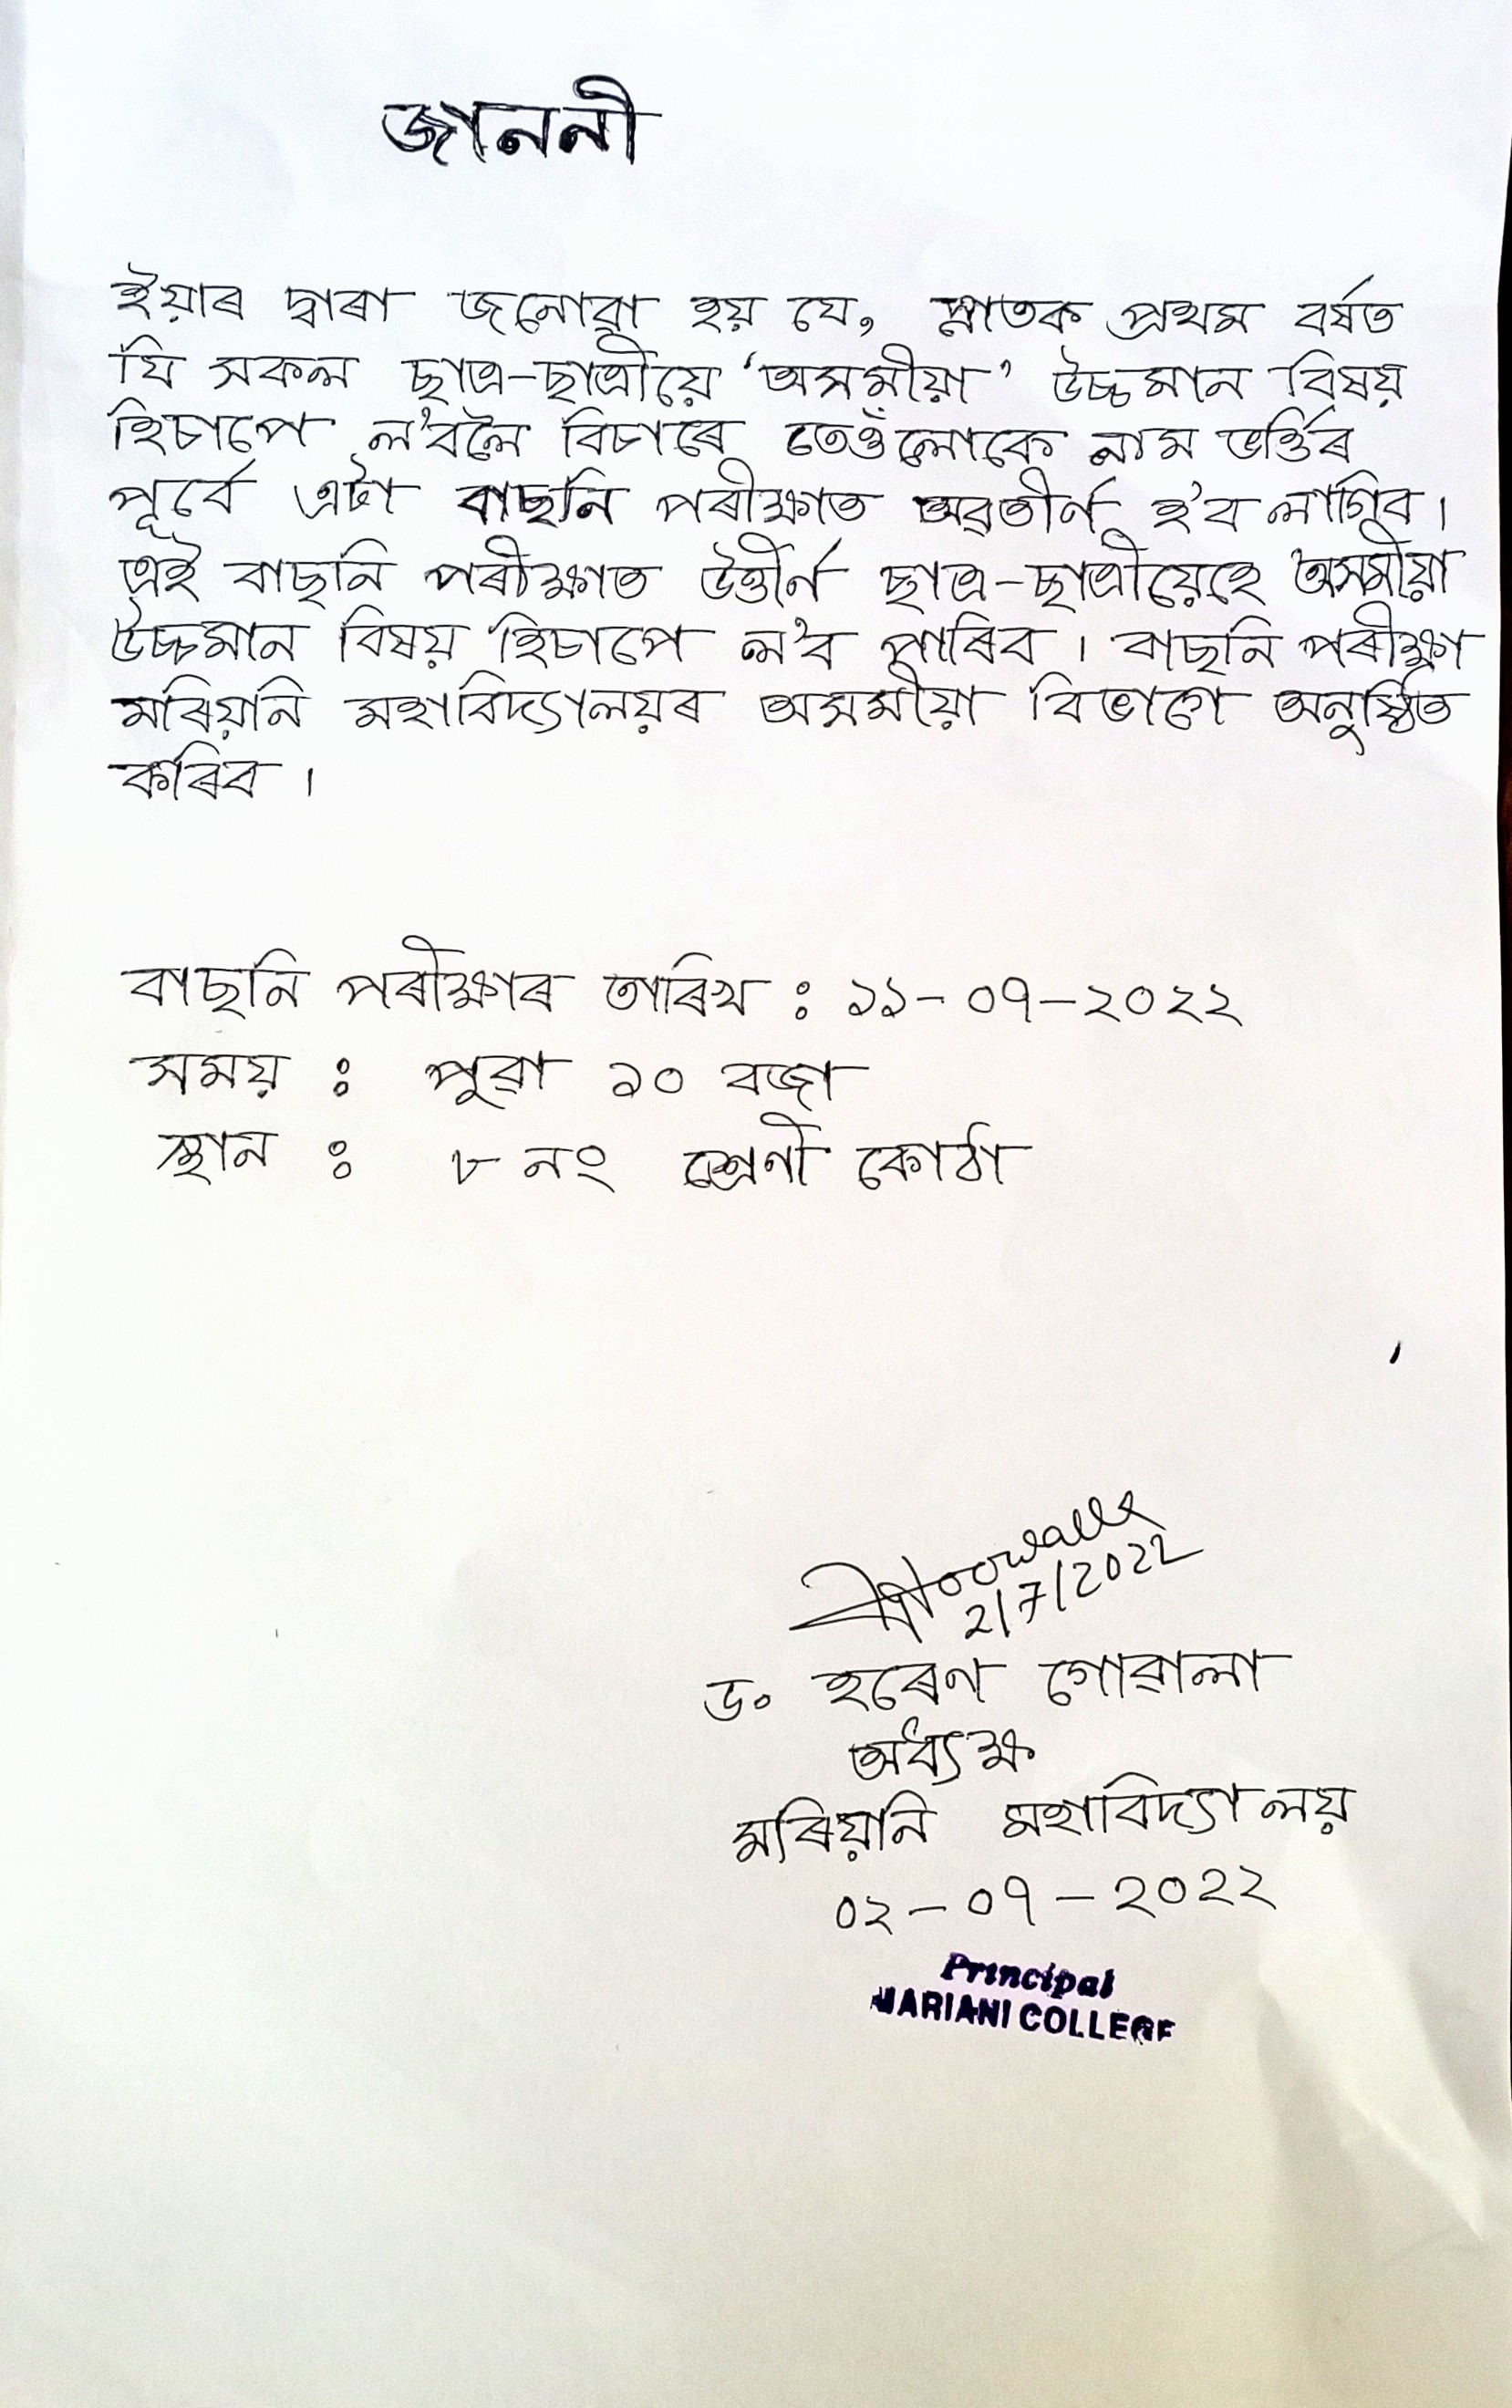 জাননী
ইয়াৰ দ্বাৰা জনোৱা হয় যে, স্নাতক প্ৰথম বৰ্ষত
যি সকল ছাত্ৰ-ছাত্ৰীয়ে ‘অসমীয়া’ উচ্চমান বিষয়
হিচাপে ল'বলৈ বিচাৰে তেওঁলোকে নাম ভৰ্ত্তিৰ
পূৰ্বে এটা বাছনি পৰীক্ষাত অৱতীৰ্ন হ'ব লাগিব।
এই বাছনি পৰীক্ষাত উত্তীৰ্ন ছাত্ৰ-ছাত্ৰীয়েহে অসমীয়া
উচ্চমান বিষয় হিচাপে ল'ব পাৰিব। বাছনি পৰীক্ষা
মৰিয়নি মহাবিদ্যালয়ৰ অসমীয়া বিভাগে অনুষ্ঠিত
কৰিব।
বাছনি পৰীক্ষাৰ তাৰিখ : ১১-০৭-২০২২
সময় : পুৱা ১০ বজা
স্থান : ৮ নং শ্ৰেণী কোঠা
2/7/2022
ড° হৰেণ গোৱালা
অধ্যক্ষ
মৰিয়নি মহাবিদ্যালয়
০২-০৭-২০২২
Principal
MARIANI COLLEGE